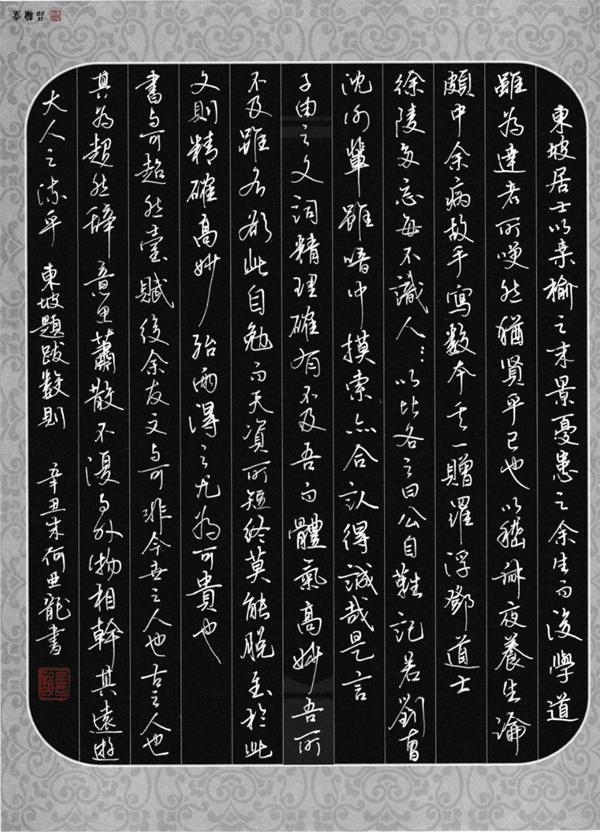 東坡居士以桑榆之末景憂患之余生而後學道
雖為達者所咲然猶賢乎已也以嵇叔夜養生論
頗中余病故手寫數本其一贈羅浮鄧道士
徐陵多忘每不識人〻以此咎之曰公自難記若劉曹
沈謝輩雖暗中摸索亦合認得誠哉是言
子由之文詞精理確有不及吾而體氣高妙吾所
不及雖各欲此自勉而天資所短終莫能脫至於此
文則精確高妙殆兩得之尤為可貴也
書與可超然臺賦後余友文與可非今世之人也古之人也
其為超然辭意思蕭散不復與外物相幹其遠遊
大人之流乎 東坡題跋數則 辛丑 何 龍書